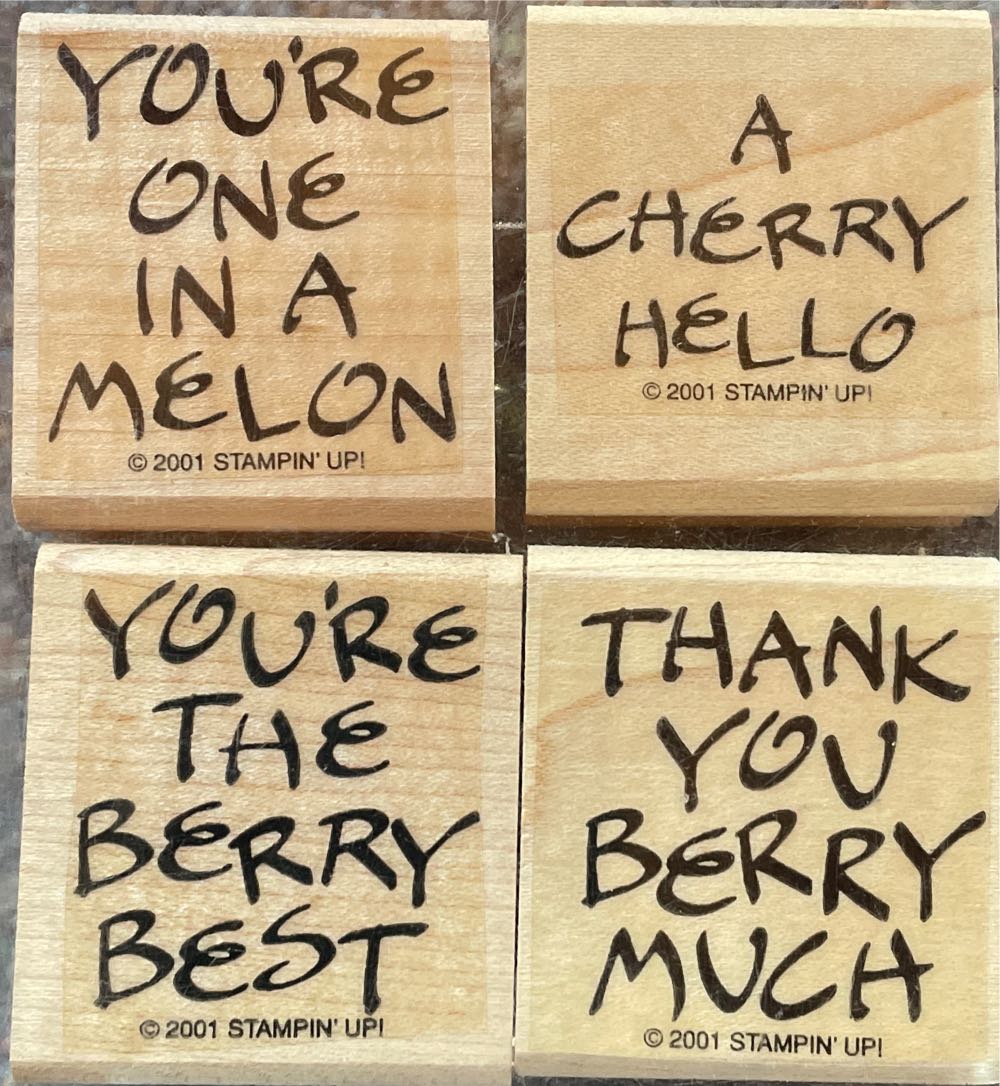 YOU'RE
ONE
IN A
MELON
© 2001 STAMPIN' UP!
A
CHERRY
HELLO
© 2001 STAMPIN' UP!
YOU'RE
THE
BERRY
BEST
© 2001 STAMPIN' UP!
THANK
YOU
BERRY
MUCH
© 2001 STAMPIN' UP!